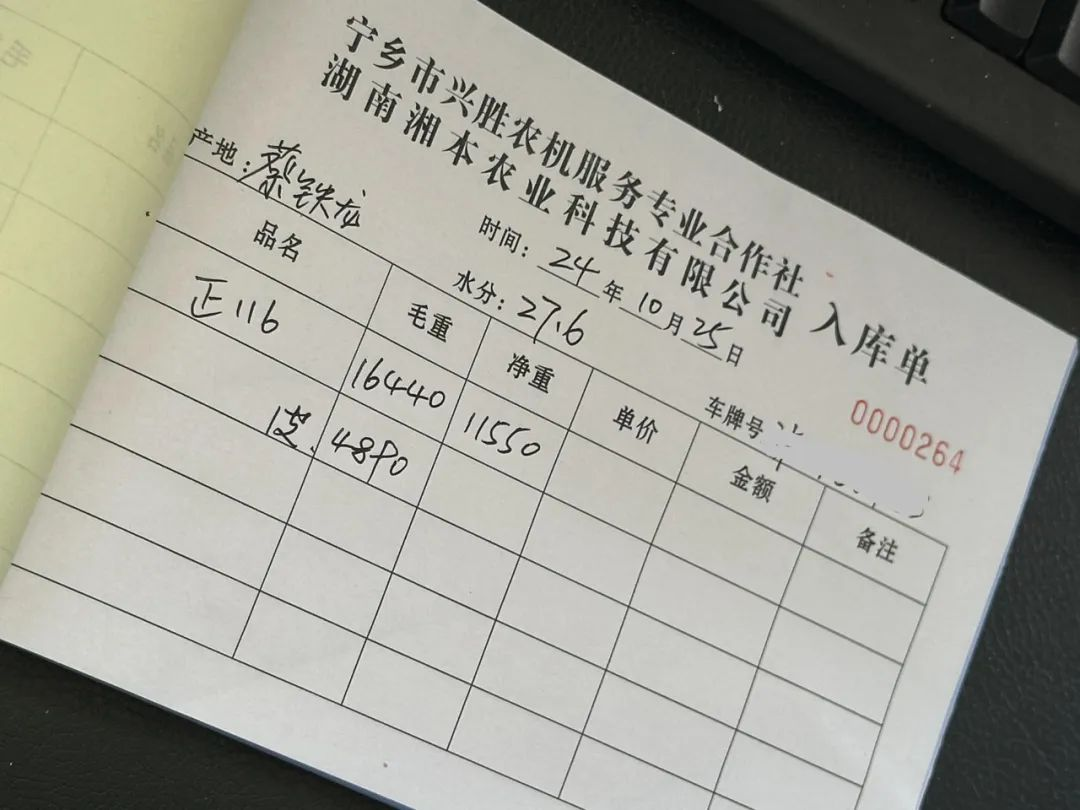 宁乡市兴胜农机服务专业合作社
湖南湘本农业科技有限公司 入库单
产地: 蔡铁龙 时间: 24年10月25日 0000264
水分: 27.6 车牌号
品名 毛重 净重 单价 金额 备注
正116 16440 11550
皮. 4890